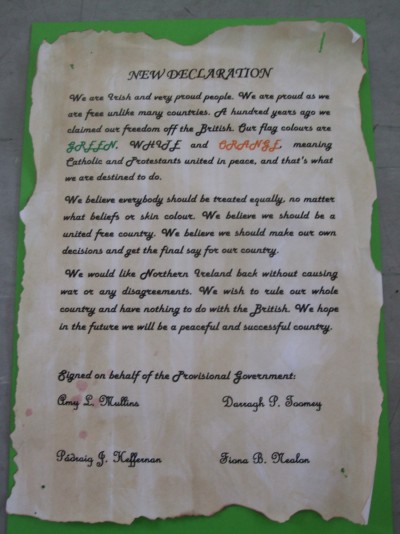 NEW DECLARATION
We are Irish and very proud people. We are proud as we
are free unlike many countries. A hundred years ago we
claimed our freedom off the British. Our flag colours are
GREEN, WHITE and ORANGE, meaning
Catholic and Protestants united in peace, and that's what
we are destined to do.
We believe everybody should be treated equally, no matter
what beliefs or skin colour. We believe we should be a
united free country. We believe we should make our own
decisions and get the final say for our country.
We would like Northern Ireland back without causing
war or any disagreements. We wish to rule our whole
country and have nothing to do with the British. We hope
in the future we will be a peaceful and successful country.
Signed on behalf of the Provisional Government:
Amy L. Mullins Darragh P. Toomey
Pádraig J. Heffernan Fiona B. Nealon